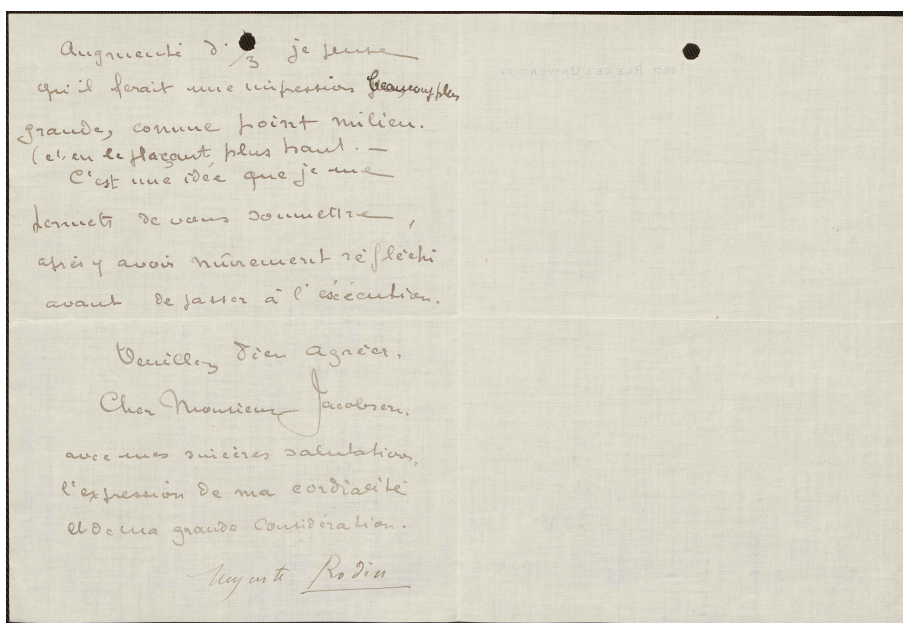 Augmenté d' /3 je pense
qu'il ferait une impression beaucoup plus
grande, comme point milieu.
(et en le plaçant plus haut. —
C'est une idée que je me
permets de vous soumettre,
après y avoir mûrement réfléchi
avant de passer à l'exécution.
Veuillez bien agréer,
Cher Monsieur Jacobsen,
avec mes sincères salutations,
l'expression de ma cordialité
et de ma grande considération.
Auguste Rodin
RUE DE L'UNIVERSITÉ